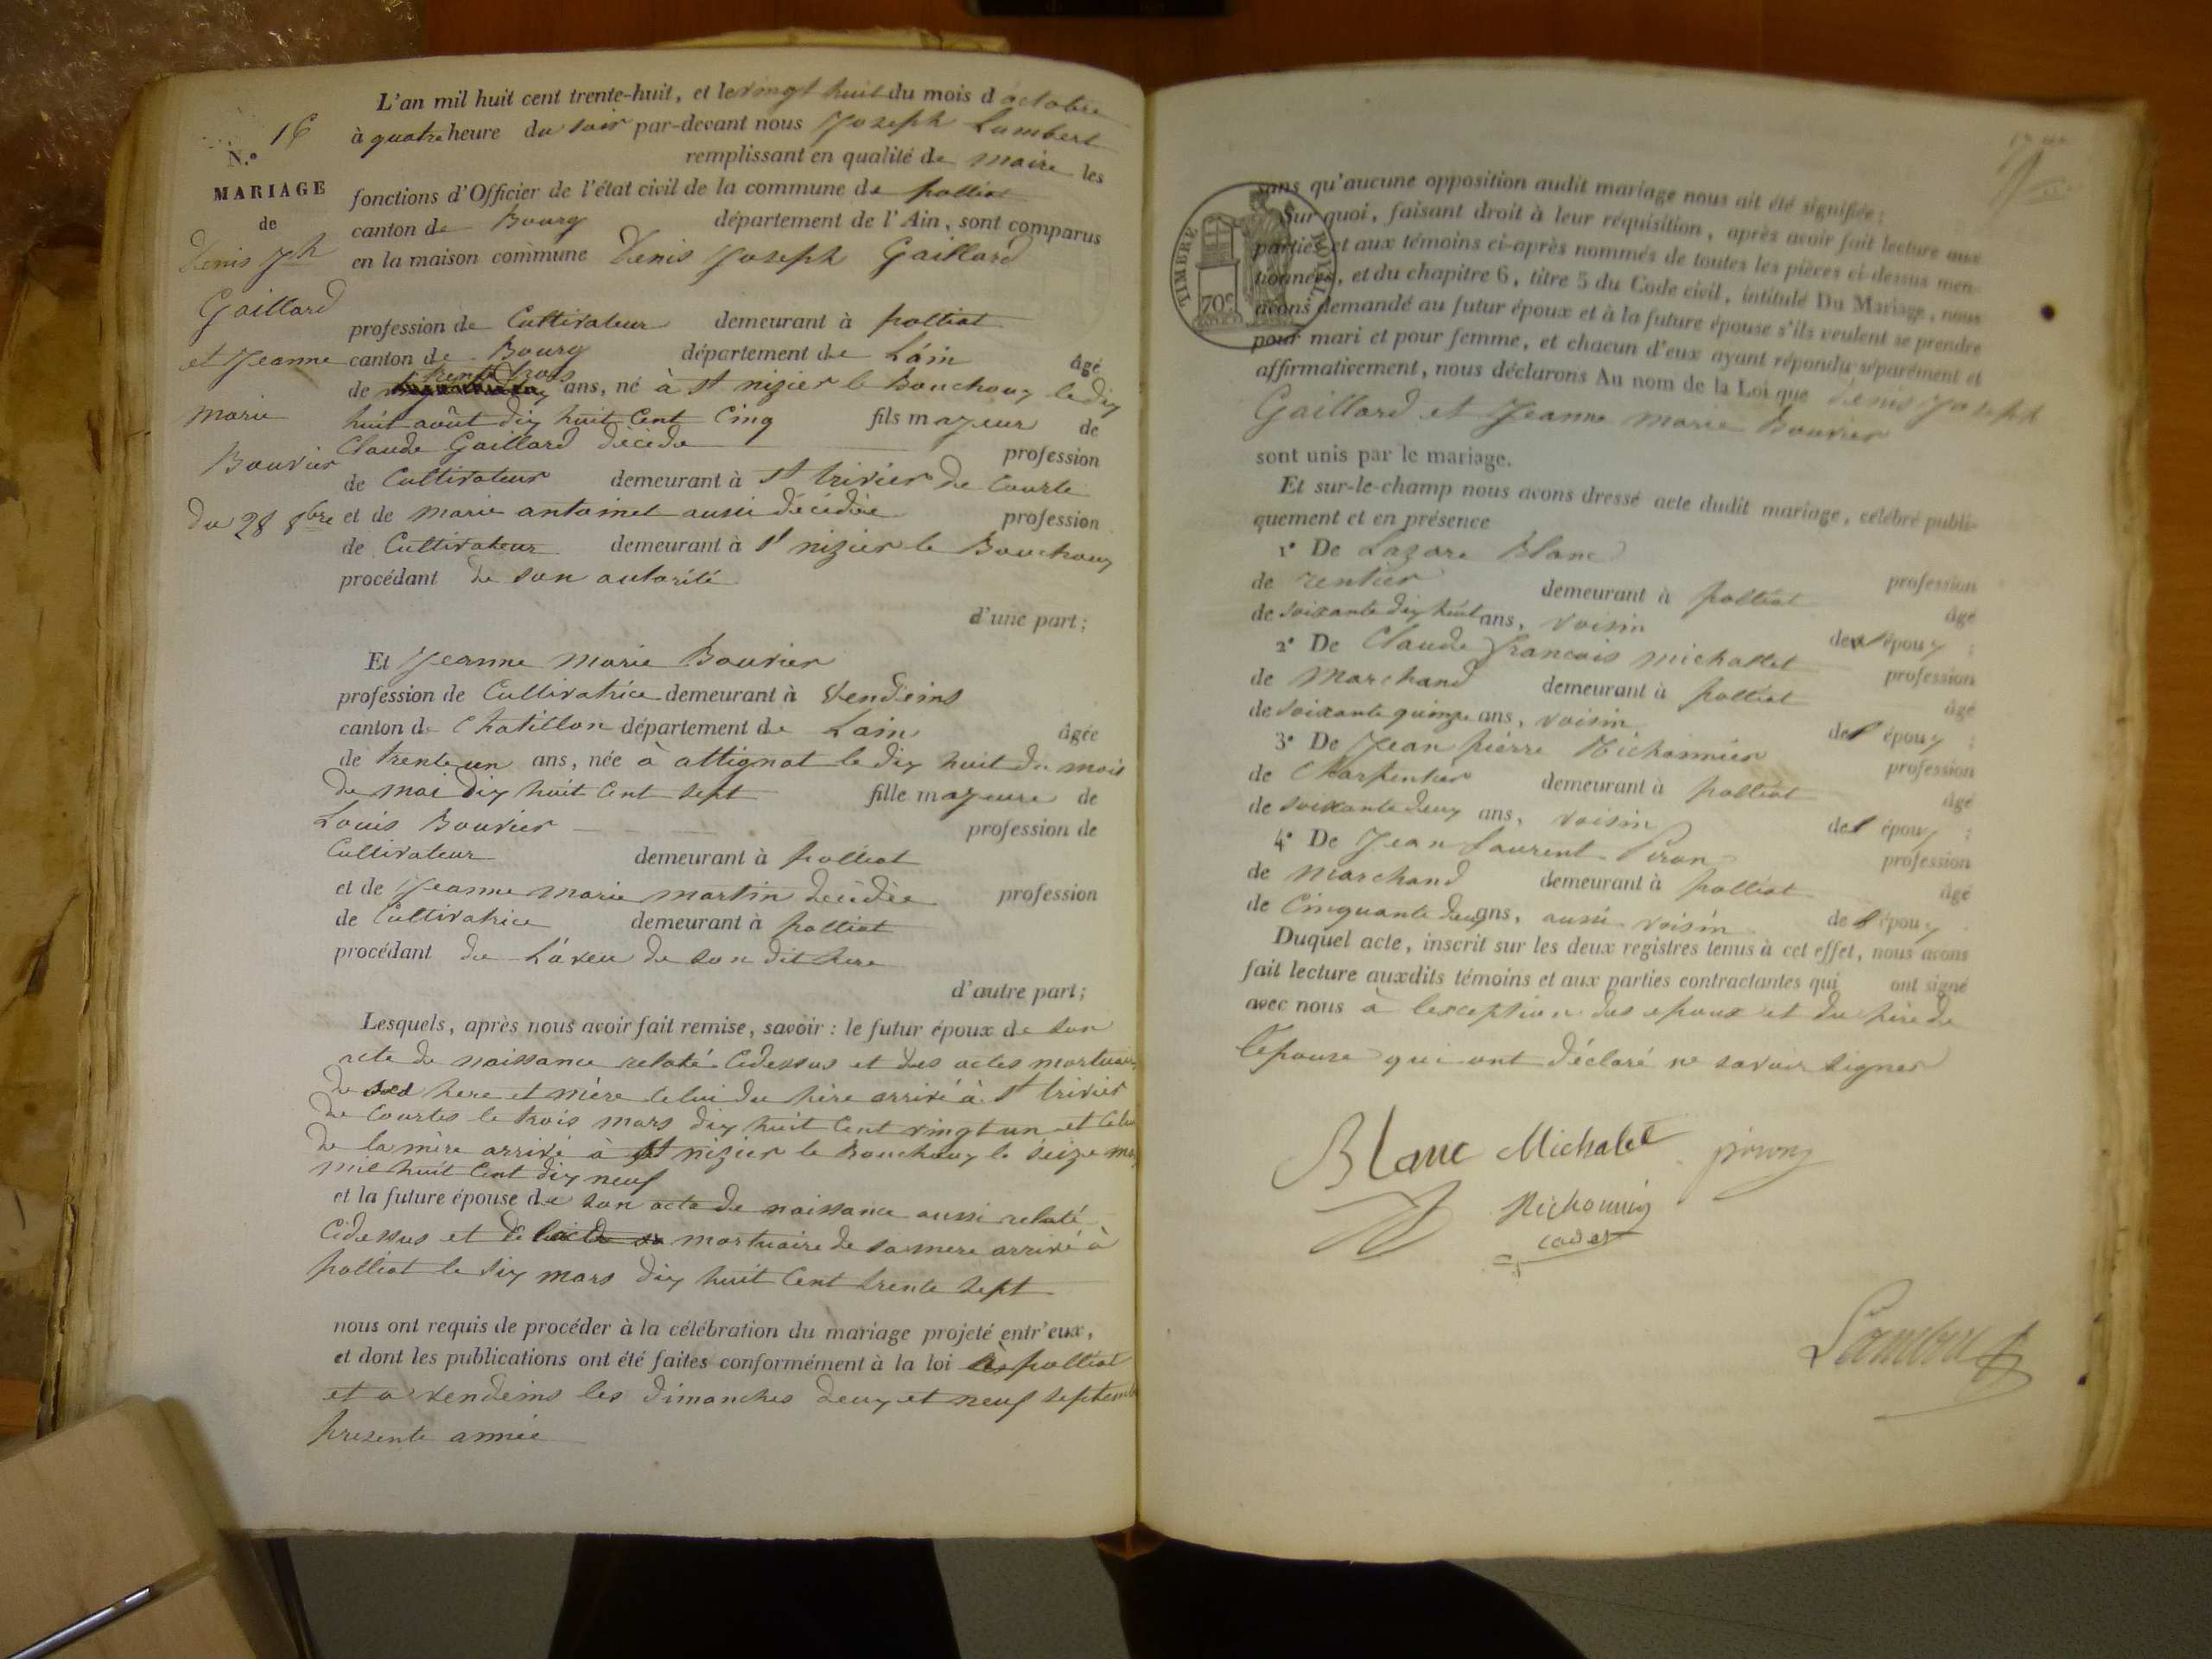 N.° 16
MARIAGE
de
Denis Jph
Gaillard
et Jeanne
marie
Bouvier
du 28 8bre
L'an mil huit cent trente-huit, et le vingt huit du mois d'octobre
à quatre heure du soir par-devant nous Joseph Lambert
remplissant en qualité de maire les
fonctions d'Officier de l'état civil de la commune de polliat
canton de Bourg département de l'Ain, sont comparus
en la maison commune Denis Joseph Gaillard
profession de Cultivateur demeurant à polliat
canton de Bourg département de L'ain âgé
trente trois
de ans, né à st nizier le Bouchoux le dix
huit août dix huit Cent Cinq fils majeur de
Claude Gaillard décédé profession
de Cultivateur demeurant à st trivier de Courte
et de marie antoinet aussi décédée profession
de Cultivateur demeurant à st nizier le Bouchoux
procédant de son autorité
d'une part;
Et Jeanne marie Bouvier
profession de Cultivatrice demeurant à Vendeins
canton de Chatillon département de Lain âgée
de trente un ans, née à attignat le dix huit du mois
de mai dix huit Cent sept fille majeure de
Louis Bouvier profession de
Cultivateur demeurant à polliat
et de Jeanne marie martin décédée profession
de Cultivatrice demeurant à polliat
procédant de L'aveu de son dit père
d'autre part;
Lesquels, après nous avoir fait remise, savoir: le futur époux de son
acte de naissance relaté Cidessus et des actes mortuaires
de ses pere et mère celui du père arrivé à st trivier
de Courtes le trois mars dix huit Cent vingt un et Celui
de la mère arrivé à st nizier le Bouchoux le seize
mil huit Cent dix neuf
et la future épouse de son acte de naissance aussi relaté
Cidessus et de l'acte mortuaire de sa mere arrivé à
polliat le six mars dix huit Cent trente sept
nous ont requis de procéder à la célébration du mariage projeté entr'eux,
et dont les publications ont été faites conformément à la loi à polliat
et a vendeins les dimanches deux et neuf septembre
presente année
TIMBRE ROYAL
70c
sans qu'aucune opposition audit mariage nous ait été signifiée;
Sur quoi, faisant droit à leur réquisition, après avoir fait lecture aux
parties et aux témoins ci-après nommés de toutes les pièces ci-dessus men-
tionnées, et du chapitre 6, titre 5 du Code civil, intitulé Du Mariage, nous
avons demandé au futur époux et à la future épouse s'ils veulent se prendre
pour mari et pour femme, et chacun d'eux ayant répondu séparément et
affirmativement, nous déclarons Au nom de la Loi que Denis Joseph
Gaillard et Jeanne marie Bouvier
sont unis par le mariage.
Et sur-le-champ nous avons dressé acte dudit mariage, célébré publi-
quement et en présence
1° De Lazare Blanc profession
de rentier demeurant à polliat âgé
de soixante dix huit ans, voisin de l'époux ;
2° De Claude françois michallet profession
de Marchand demeurant à polliat âgé
de soixante quinze ans, voisin de l'époux ;
3° De Jean pierre Nichonnier profession
de Charpentier demeurant à polliat âgé
de soixante deux ans, voisin de l'époux ;
4° De Jean Laurent Piron profession
de Marchand demeurant à polliat âgé
de Cinquante deux ans, aussi voisin de l'époux
Duquel acte, inscrit sur les deux registres tenus à cet effet, nous avons
fait lecture auxdits témoins et aux parties contractantes qui ont signé
avec nous à l'exception des epoux et du père de
l'epouse qui ont déclaré ne savoir signer
Blanc Michalet
Lambert